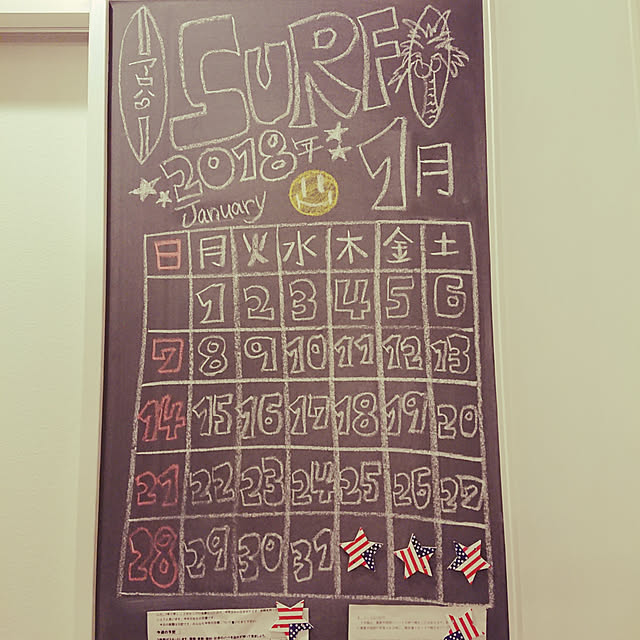 アロハ
SURF
2018年
1月
January
日 月 火 水 木 金 土
1 2 3 4 5 6
7 8 9 10 11 12 13
14 15 16 17 18 19 20
21 22 23 24 25 26 27
28 29 30 31